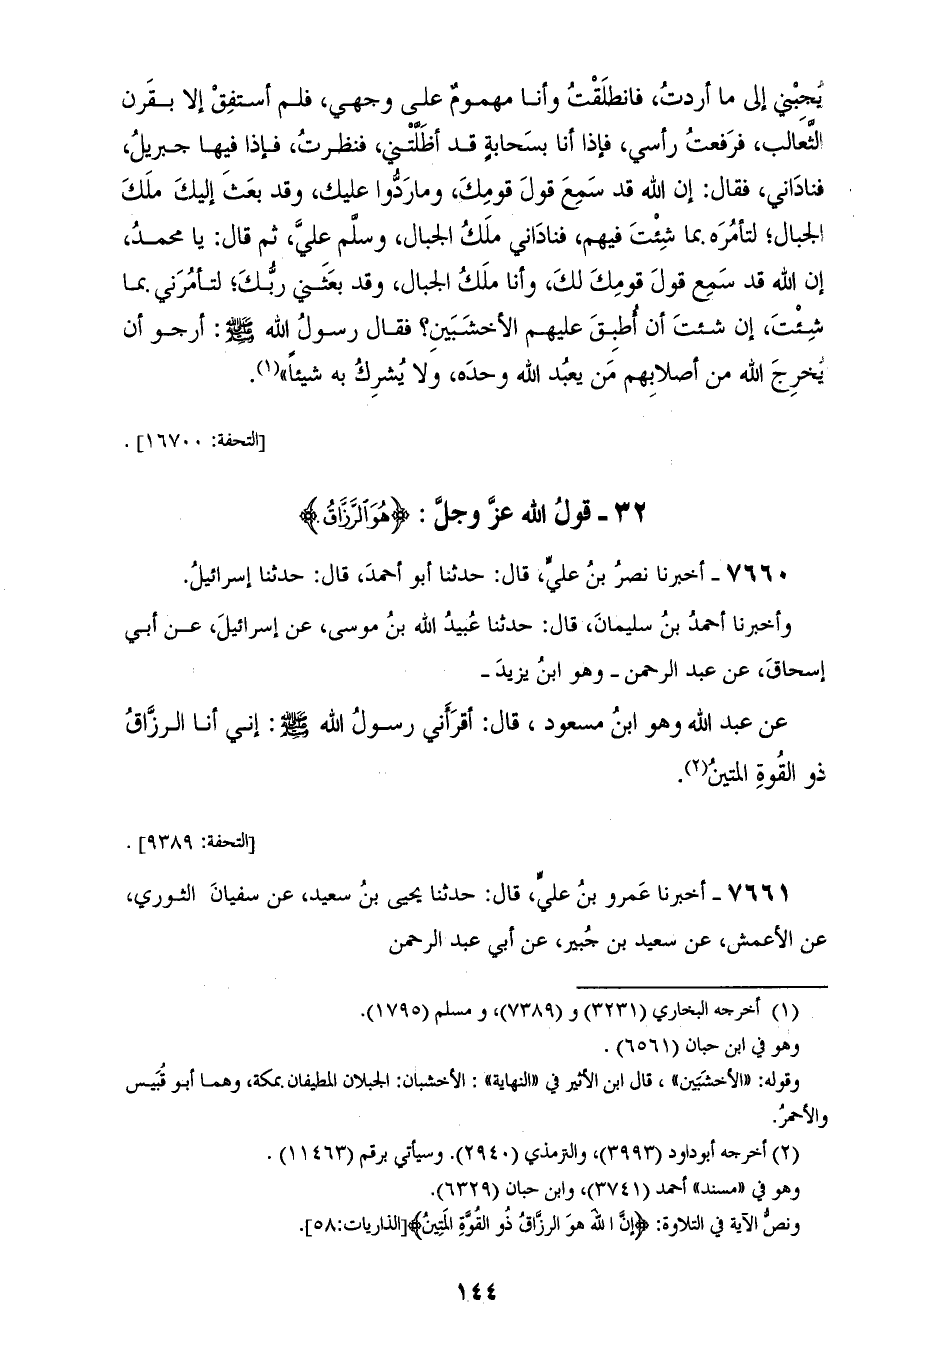 يُجِبْني إلى ما أردتُ، فانطلَقْتُ وأنا مهمومٌ على وجهي، فلم أستفِقْ إلا بقَرن
الثَّعالب، فرَفعتُ رأسي، فإذا أنا بسَحابةٍ قد أظَلَّتْني، فنظرتُ، فإذا فيها جبريلُ،
فنادَاني، فقال: إن الله قد سَمِعَ قولَ قومِكَ، وما رَدُّوا عليك، وقد بعَثَ إليكَ ملَكَ
الجبال؛ لتأمُرَه بما شِئْتَ فيهم، فنادَاني ملَكُ الجبال، وسلَّم عليَّ، ثم قال: يا محمدُ،
إن الله قد سَمِع قولَ قومِكَ لكَ، وأنا ملَكُ الجبال، وقد بعَثَني ربُّكَ؛ لتأمُرَني بما
شِئْتَ، إن شئتَ أن أُطبِقَ عليهم الأخشَبَينِ؟ فقال رسولُ الله ﷺ: أرجو أن
يُخرِجَ الله من أصلابِهم مَن يعبُد الله وحدَه، ولا يُشرِكُ به شيئاً»(١).
[التحفة: ١٦٧٠٠].
٣٢ - قولُ الله عزَّ وجلَّ: ﴿هُوَ ٱلرَّزَّاقُ﴾
٧٦٦٠ - أخبرنا نصرُ بنُ عليٍّ، قال: حدثنا أبو أحمدَ، قال: حدثنا إسرائيلُ.
وأخبرنا أحمدُ بنُ سليمانَ، قال: حدثنا عُبيدُ الله بنُ موسى، عن إسرائيلَ، عن أبي
إسحاقَ، عن عبد الرحمن - وهو ابنُ يزيدَ -
عن عبد الله وهو ابنُ مسعود، قال: أقرَأَني رسولُ الله ﷺ: إني أنا الرزَّاقُ
ذو القُوةِ المتينُ(٢).
[التحفة: ٩٣٨٩].
٧٦٦١ - أخبرنا عَمرو بنُ عليٍّ، قال: حدثنا يحيى بنُ سعيد، عن سفيانَ الثوري،
عن الأعمش، عن سعيد بن جُبير، عن أبي عبد الرحمن
(١) أخرجه البخاري (٣٢٣١) و (٧٣٨٩)، و مسلم (١٧٩٥).
وهو في ابن حبان (٦٥٦١).
وقوله: «الأخشَبَين»، قال ابن الأثير في «النهاية»: الأخشبان: الجبلان المطيفان بمكة، وهما أبو قُبَيس
والأحمرُ.
(٢) أخرجه أبوداود (٣٩٩٣)، والترمذي (٢٩٤٠). وسيأتي برقم (١١٤٦٣).
وهو في «مسند» أحمد (٣٧٤١)، وابن حبان (٦٣٢٩).
ونصُّ الآية في التلاوة: ﴿إنَّ اللهَ هوَ الرزَّاقُ ذُو القُوَّةِ المَتِينُ﴾[الذاريات:٥٨].
١٤٤